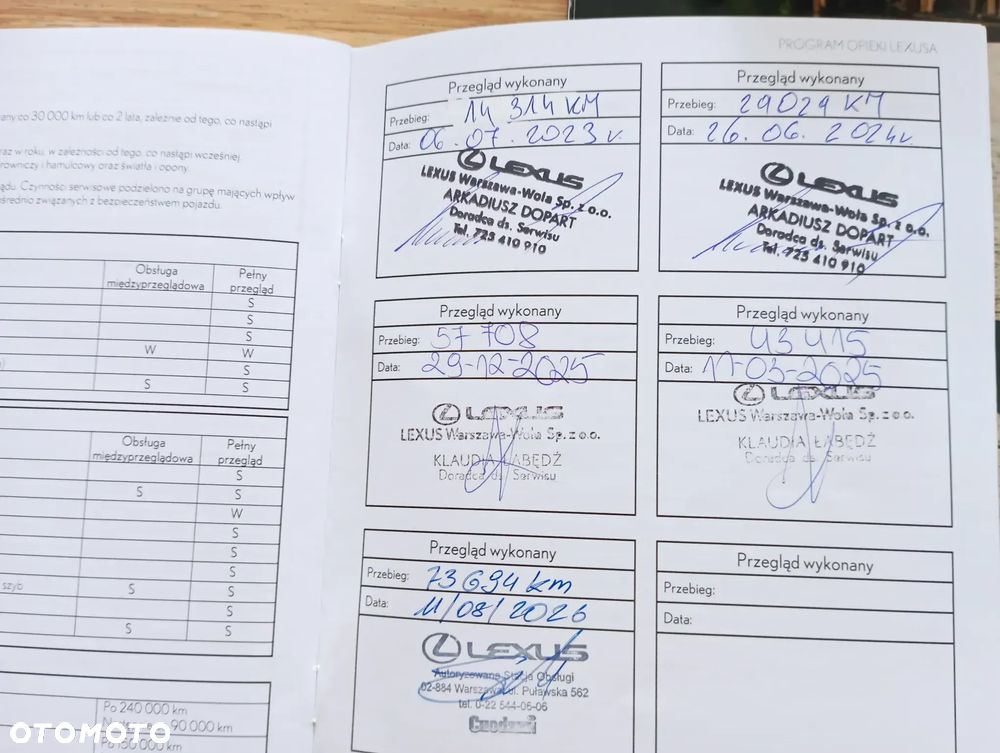 PROGRAM OPIEKI LEXUSA
any co 30 000 km lub co 2 lata, zależnie od tego, co nastąpi
raz w roku, w zależności od tego, co nastąpi wcześniej.
rowniczy i hamulcowy oraz światła i opony.
ądu. Czynności serwisowe podzielono na grupę mających wpływ
ośrednio związanych z bezpieczeństwem pojazdu.
Obsługa międzyprzeglądowa
Pełny przegląd
S
S
S
W W
S
S S
Obsługa międzyprzeglądowa
Pełny przegląd
S
S S
W
S
S
S
szyb S S
S
S S
Po 240 000 km
90 000 km
OTOMOTO
Przegląd wykonany
Przebieg: 14 314 KM
Data: 06.07.2023 r.
LEXUS
LEXUS Warszawa-Wola Sp. z o.o.
ARKADIUSZ DOPART
Doradca ds. Serwisu
Tel. 723 410 910
Przegląd wykonany
Przebieg: 29029 KM
Data: 26.06.2024r.
LEXUS
LEXUS Warszawa-Wola Sp. z o.o.
ARKADIUSZ DOPART
Doradca ds. Serwisu
Tel. 723 410 910
Przegląd wykonany
Przebieg: 57 708
Data: 29-12-2025
LEXUS
LEXUS Warszawa-Wola Sp. z o.o.
KLAUDIA ŁABĘDŹ
Doradca ds. Serwisu
Przegląd wykonany
Przebieg: 43 415
Data: 11-03-2025
LEXUS
LEXUS Warszawa-Wola Sp. z o.o.
KLAUDIA ŁABĘDŹ
Doradca ds. Serwisu
Przegląd wykonany
Przebieg: 73694 km
Data: 11/08/2026
LEXUS
Autoryzowana Stacja Obsługi
02-884 Warszawa, ul. Puławska 562
tel. 0-22 544-06-06
Przegląd wykonany
Przebieg:
Data: